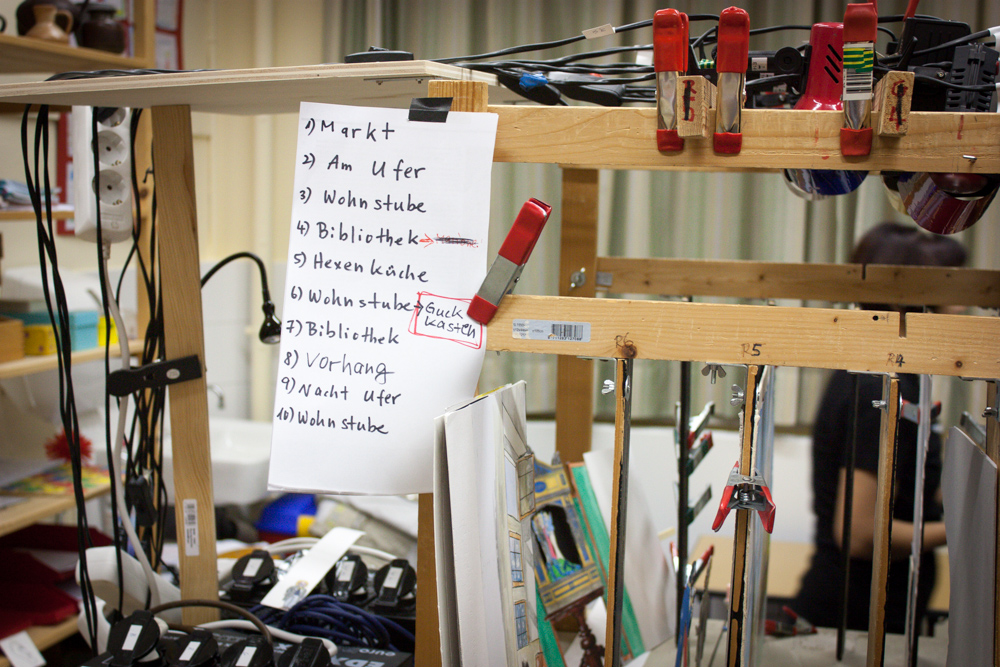 1) Markt
2) Am Ufer
3) Wohnstube
4) Bibliothek
5) Hexenküche
6) Wohnstube → Guck kasten
7) Bibliothek
8) Vorhang
9) Nacht Ufer
10) Wohnstube
R6
R5
R4